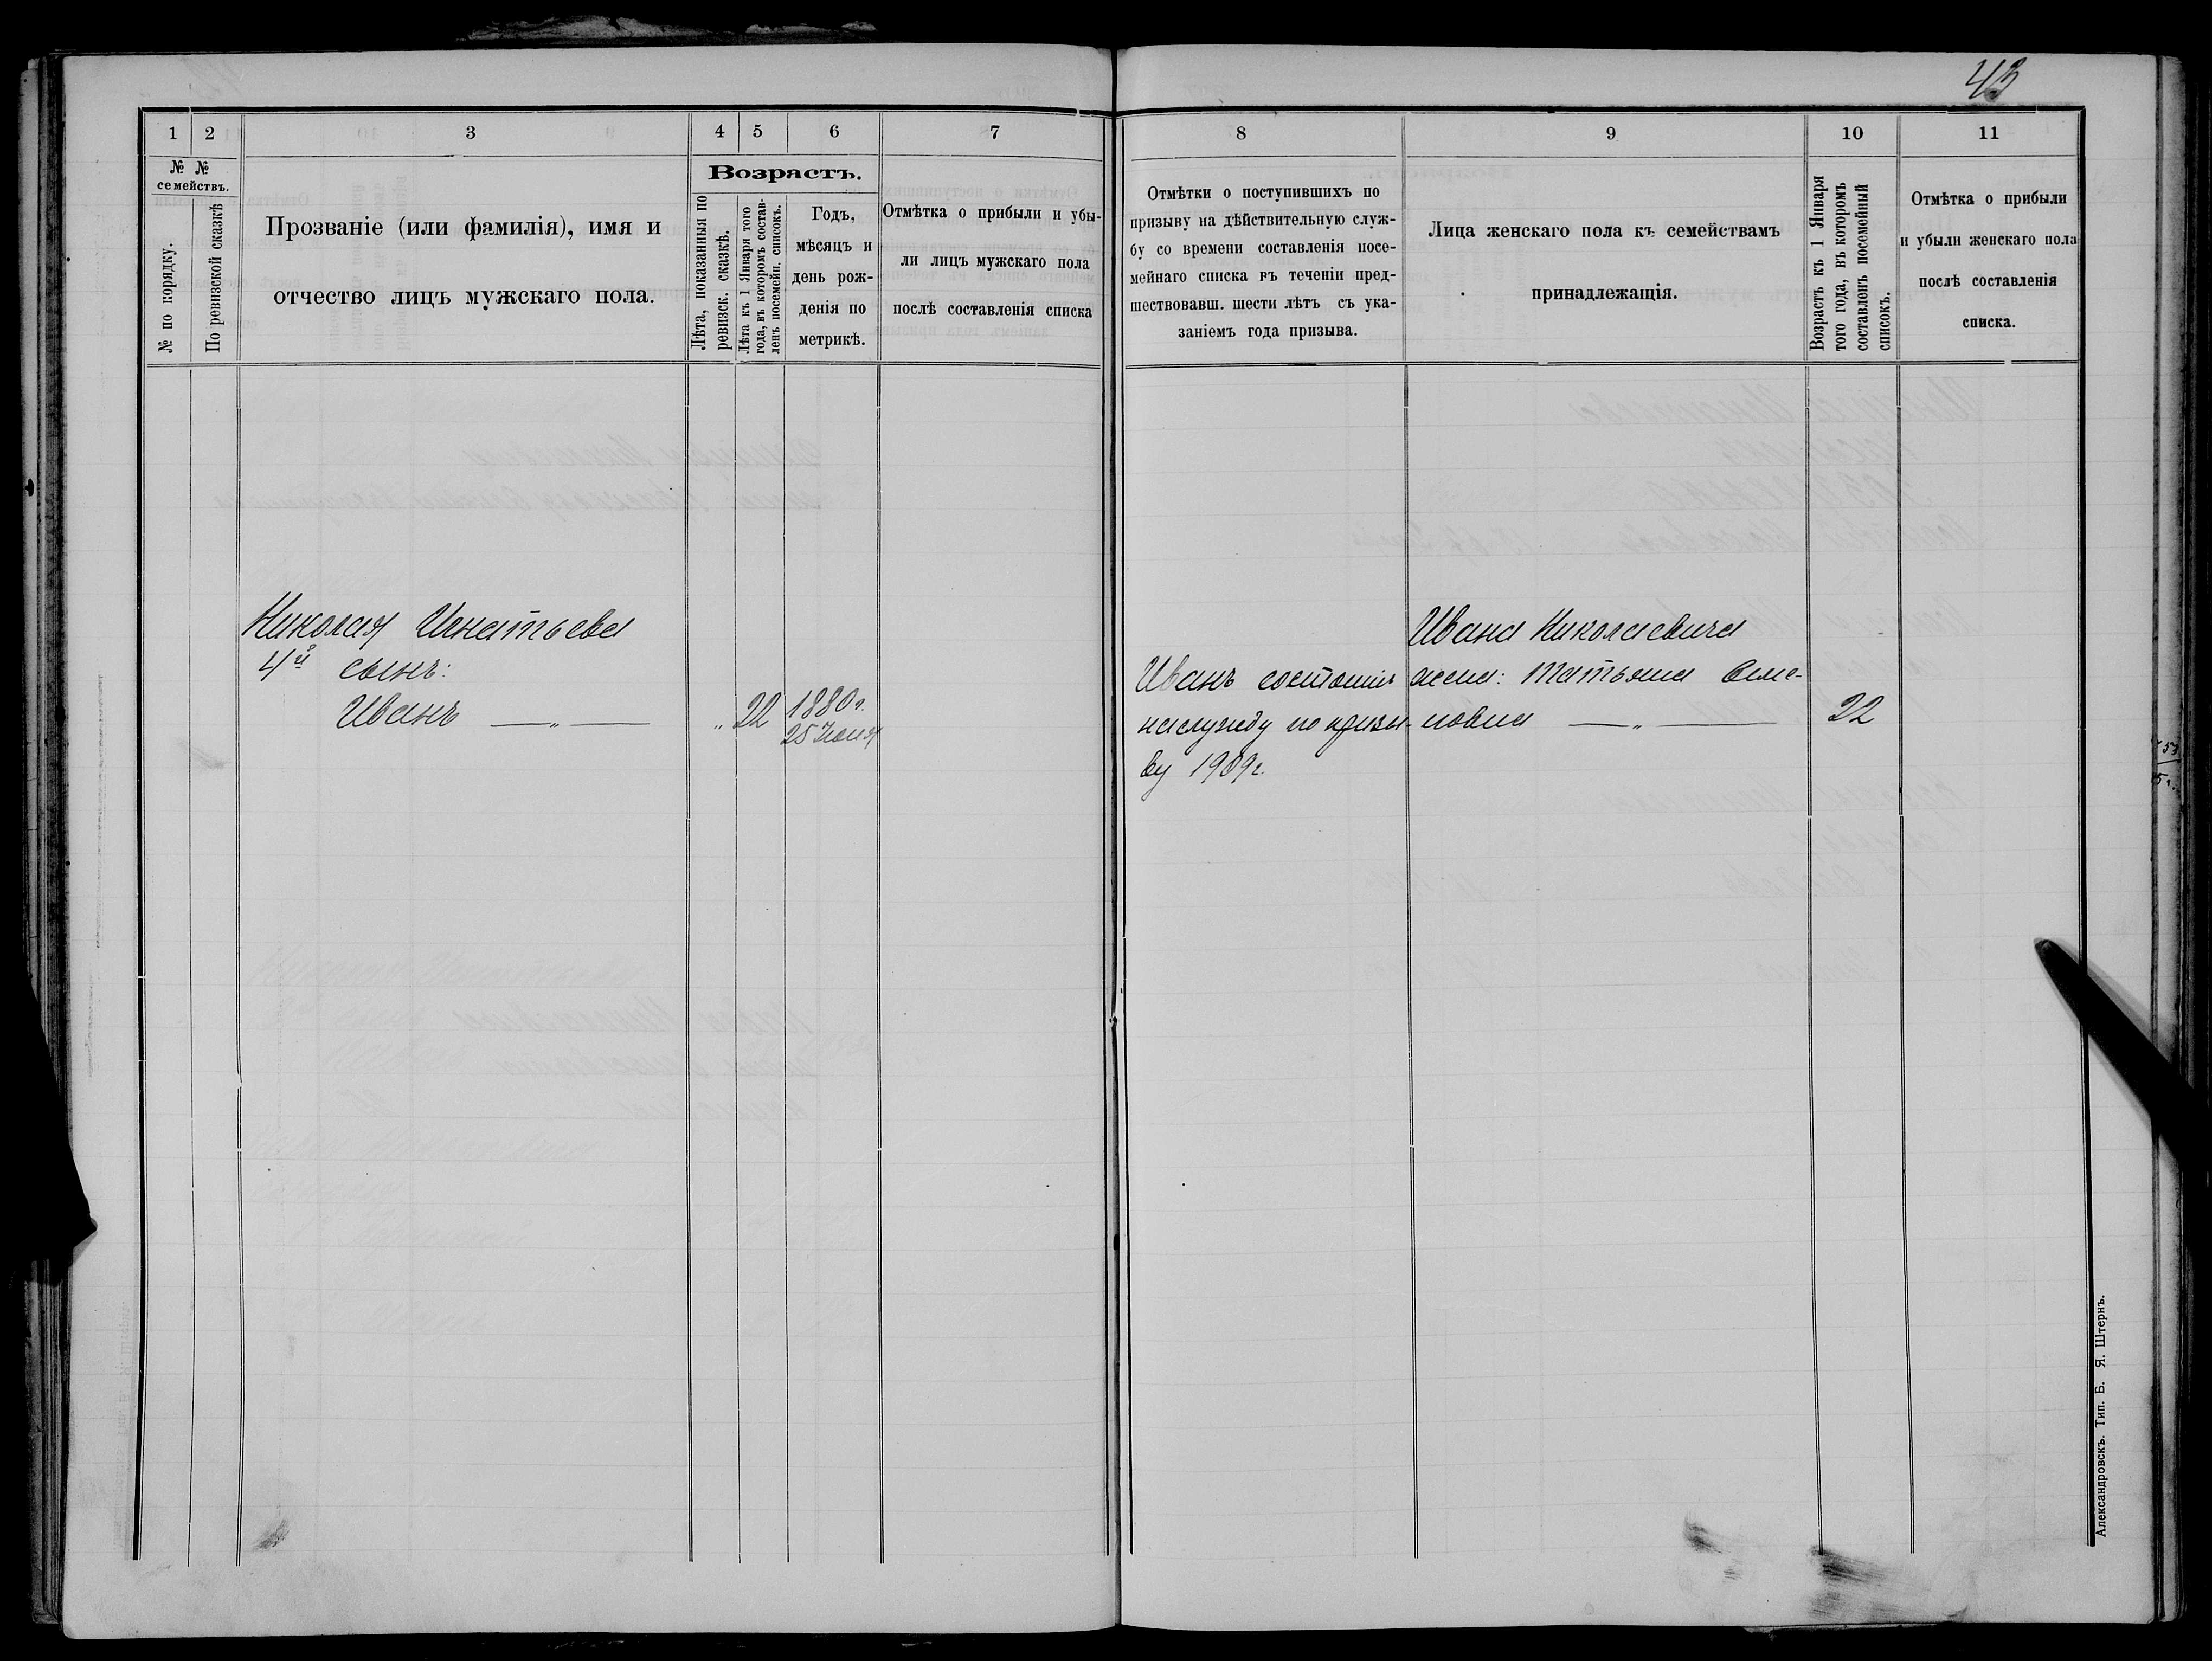 43
1
2
3
4
5
6
7
8
9
10
11
№ №
семействъ.
№ по корядку.
По ревизской сказкѣ
Прозваніе (или фамилія), имя и
отчество лицъ мужскаго пола.
Возрастъ.
Лѣта, показанныя по
ревизск. сказкѣ.
Лѣта къ 1 Января того
года, въ которомъ состав-
ленъ посемейн. списокъ.
Годъ,
мѣсяцъ и
день рож-
денія по
метрикѣ.
Отмѣтка о прибыли и убы-
ли лицъ мужскаго пола
послѣ составленія списка
Отмѣтки о поступившихъ по
призыву на дѣйствительную служ-
бу со времени составленія посе-
мейнаго списка въ теченіи пред-
шествовавш. шести лѣтъ съ ука-
заніемъ года призыва.
Лица женскаго пола къ семействамъ
принадлежащія.
Возрастъ къ 1 Января
того года, въ которомъ
составленъ посемейный
списокъ.
Отмѣтка о прибыли
и убыли женскаго пола
послѣ составленія
списка.
Николая Игнатьева
4й сынъ:
Иванъ — „ — „ 22 1880 г.
25 Июня
Иванъ состоитъ
на службу по призы-
ву 1909 г.
Ивана Николаевича
жена: Татьяна Семе-
новна — „ — 22
Александровскъ. Тип. Б. Я. Штернъ.